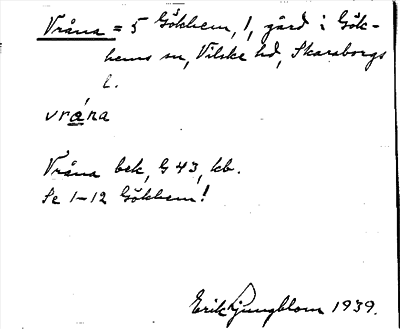 Vråna = 5 Gökhem, 1, gård i Gök-
hems sn, Vilske hd, Skaraborgs
l.
vrána
Vråna bek, G 43, kb.
Se 1-12 Gökhem!
Erik Ljungblom 1939.